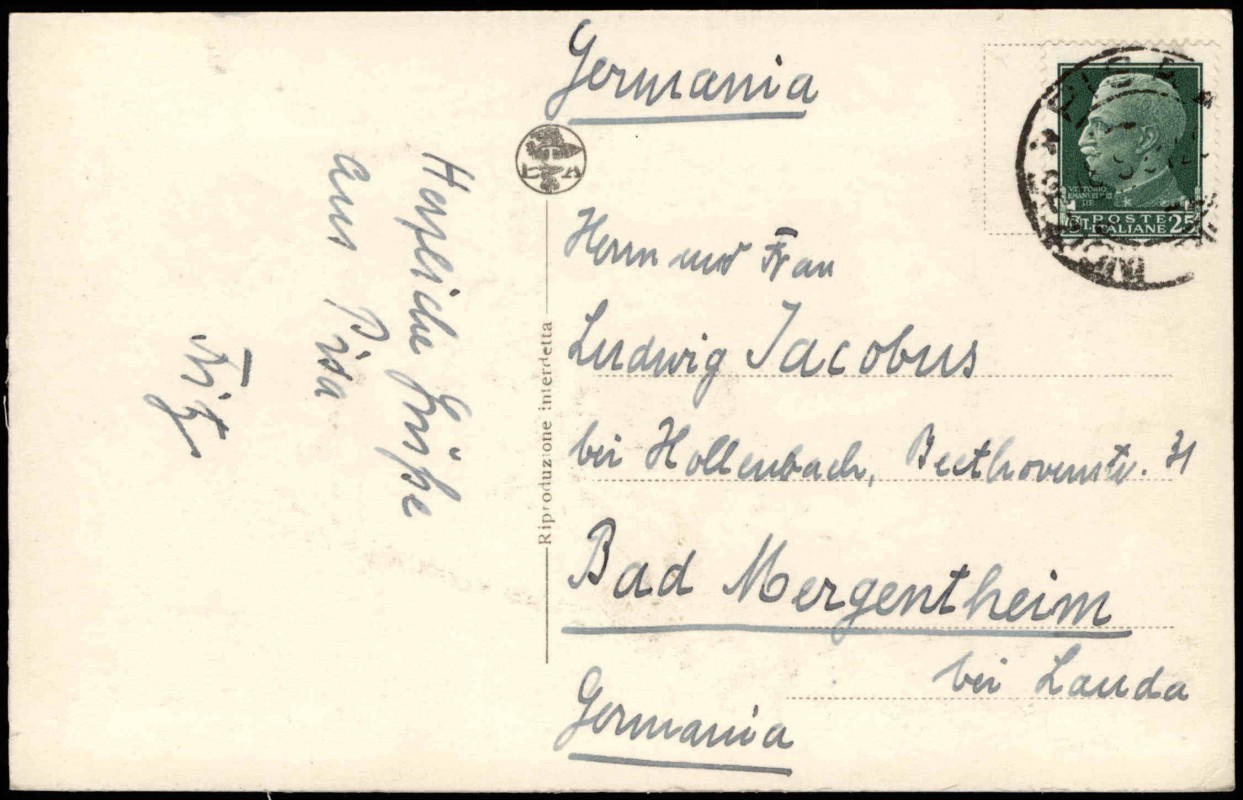 Germania
Herzliche Grüße
aus Pisa
Fritz
Riproduzione interdetta
Herrn und Frau
Ludwig Jacobus
bei Hollenbach, Beethovenstr. 31
Bad Mergentheim
bei Lauda
Germania
PISA
VITTORIO
EMANUELE III
RE
CT. POSTE
ITALIANE 25